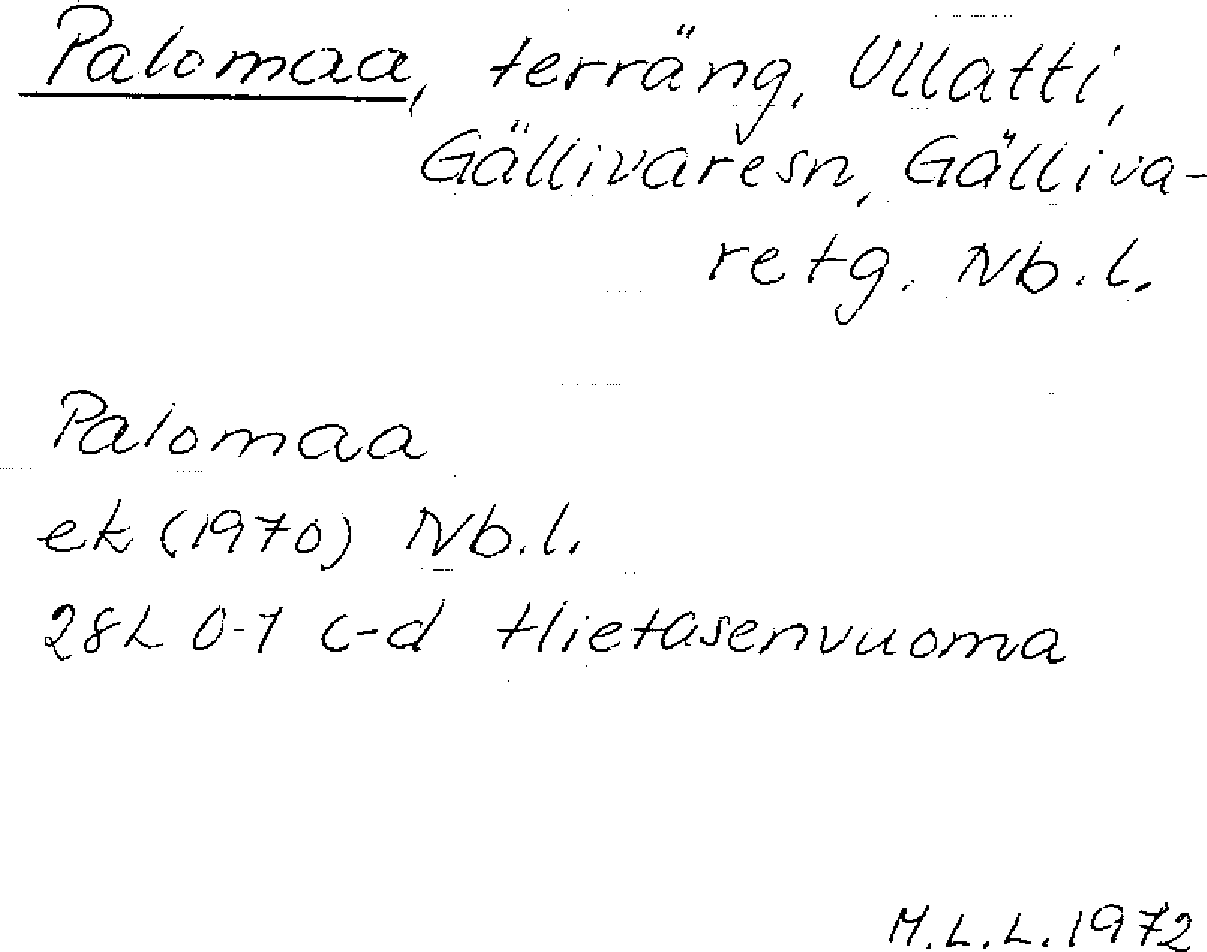 Palomaa, terräng, Ullatti,
Gällivaresn, Gälliva-
retg. Nb.l.
Palomaa
ek (1970) Nb.l.
28L 0-1 c-d Hietasenvuoma
M.L.L. 1972